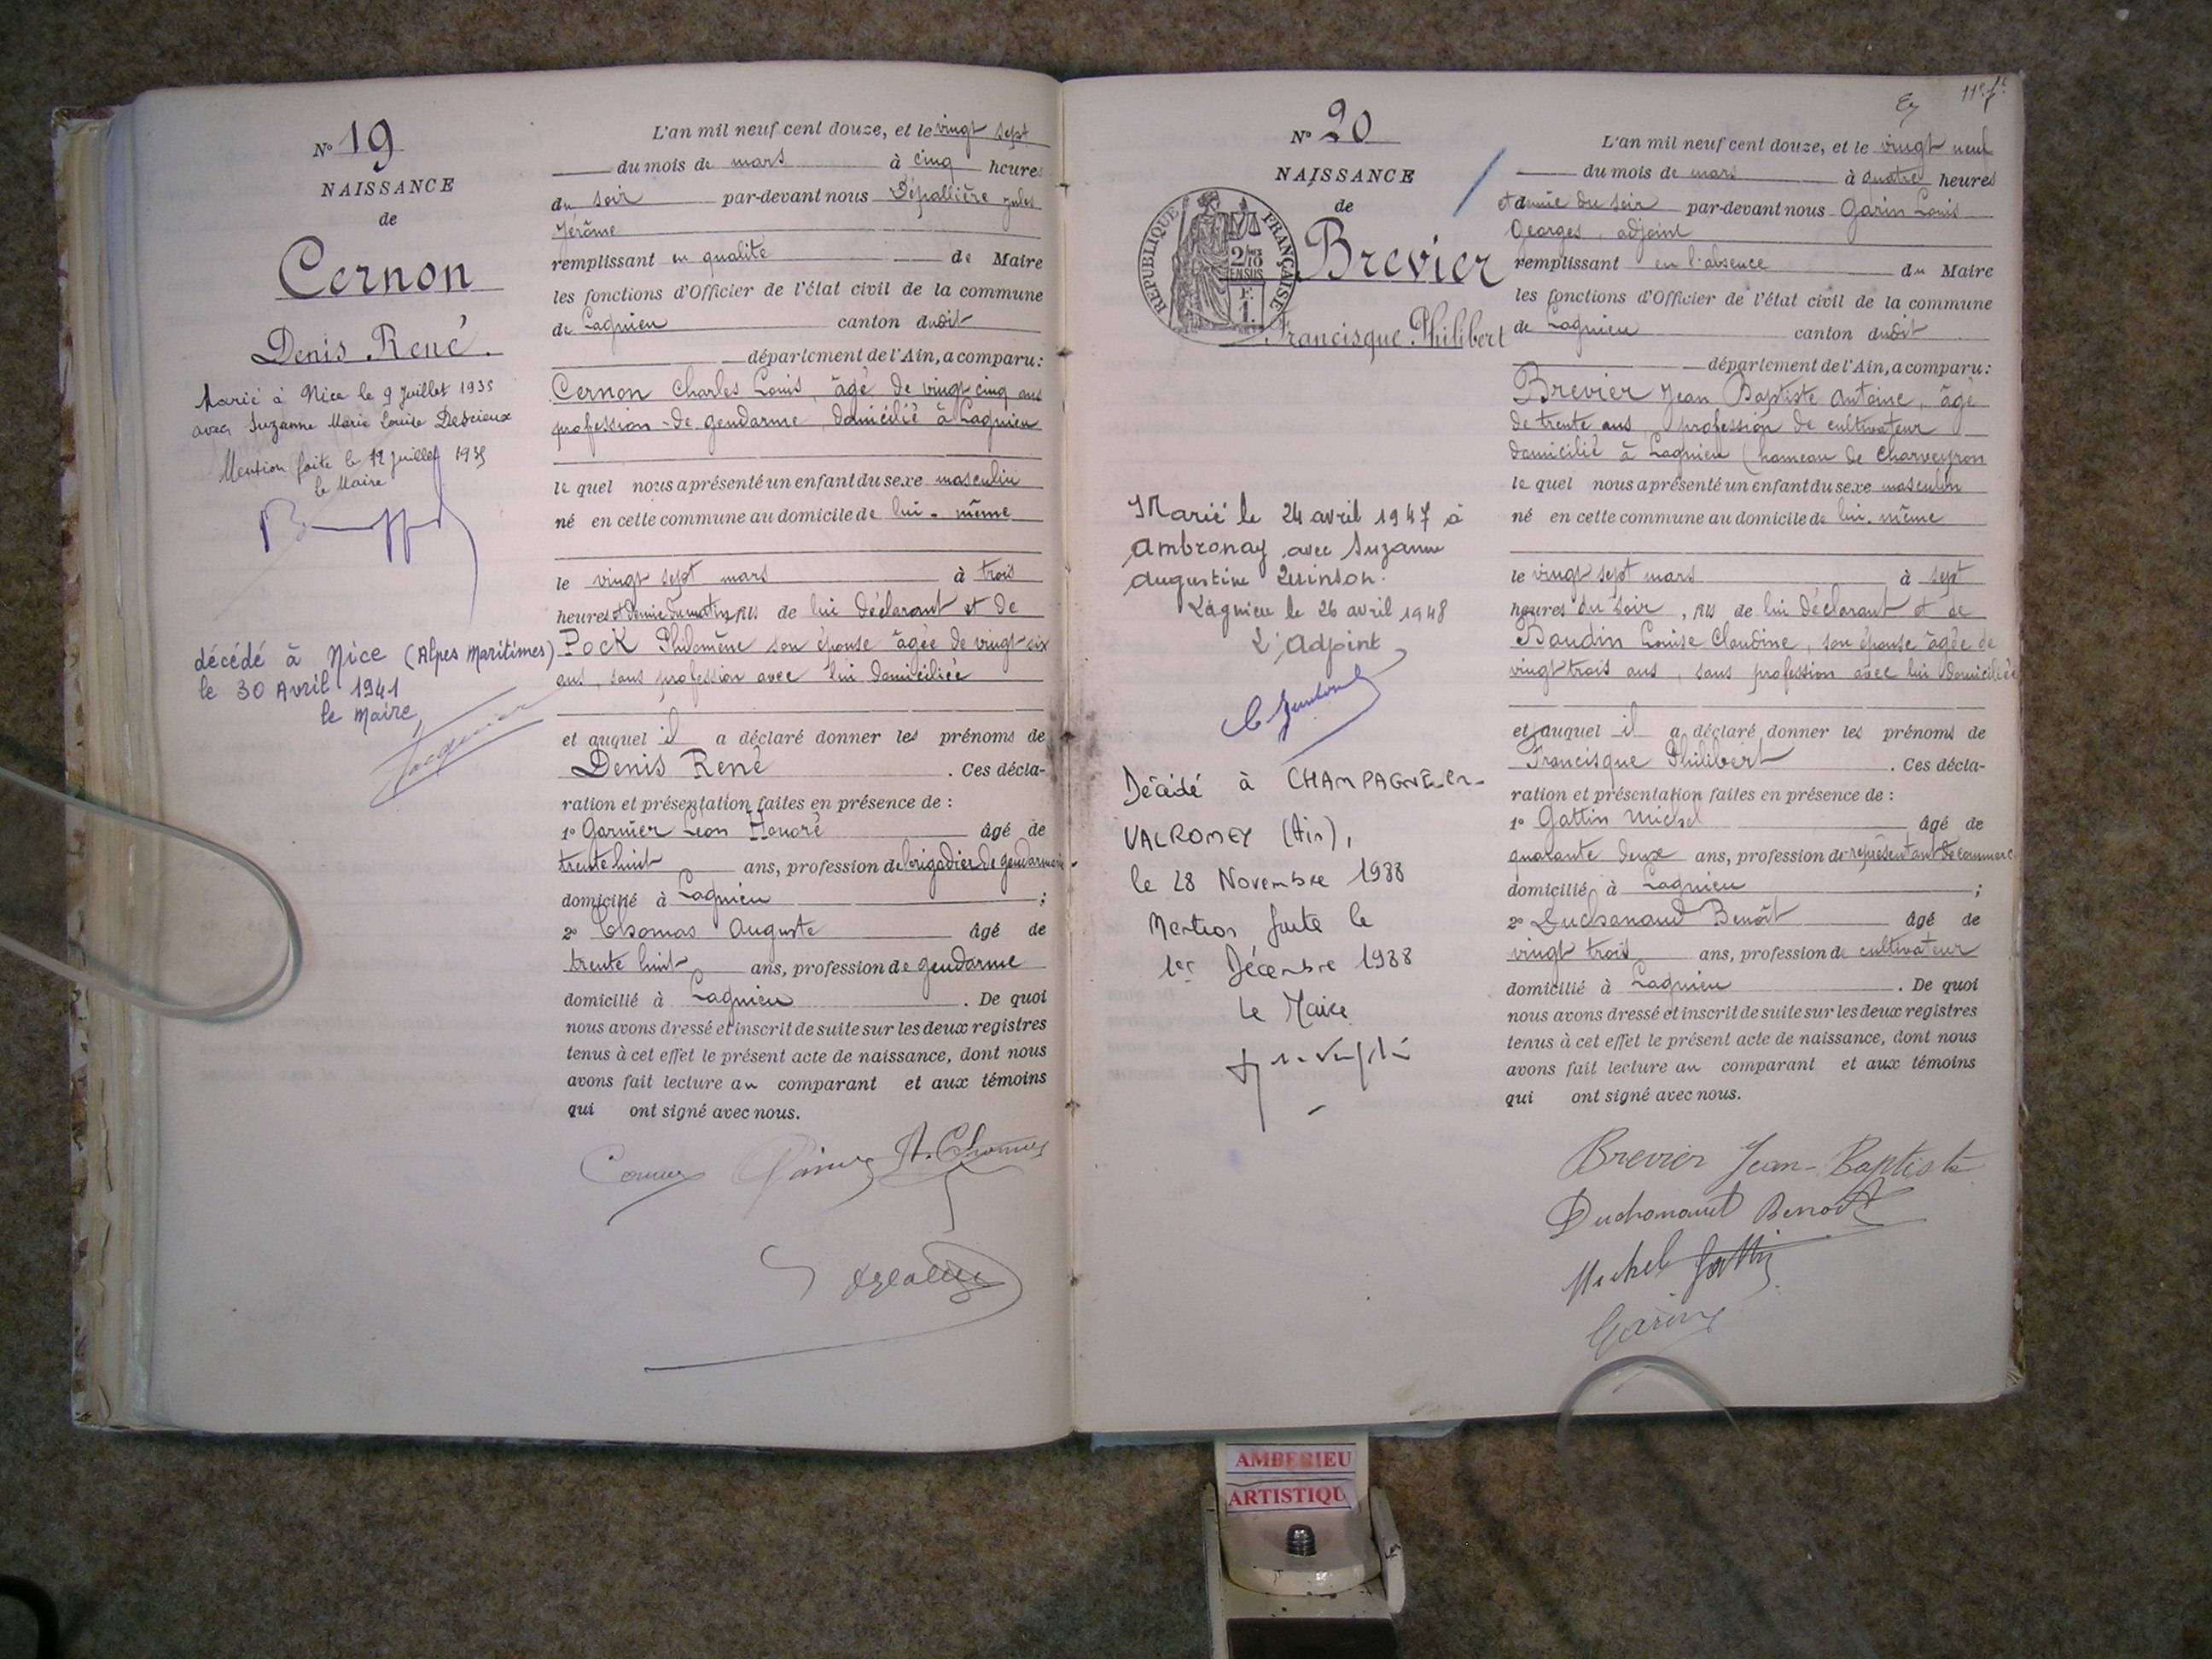 N° 19
NAISSANCE
de
Cernon
Denis René.
Marié à Nice le 9 Juillet 1935
avec Suzanne Marie Louise Descieux
Mention faite le 12 juillet 1935
le Maire
décédé à Nice (Alpes Maritimes)
le 30 Avril 1941
le Maire,
Jacquier
L'an mil neuf cent douze, et le vingt sept
du mois de mars à cinq heures
du soir par-devant nous Dépallière Jules
Jérôme
remplissant en qualité de Maire
les fonctions d'Officier de l'état civil de la commune
de Lagnieu canton dudit
département de l'Ain, a comparu:
Cernon Charles Louis, âgé de vingt-cinq ans
profession de gendarme, domicilié à Lagnieu
le quel nous a présenté un enfant du sexe masculin
né en cette commune au domicile de lui-même
le vingt sept mars à trois
heures et demie du matin, fils de lui déclarant et de
Pock Philomène son épouse âgée de vingt-six
ans, sans profession avec lui domiciliée
et auquel il a déclaré donner les prénoms de
Denis René . Ces décla-
ration et présentation faites en présence de :
1° Garnier Léon Honoré âgé de
trente huit ans, profession de brigadier de gendarmerie
domicilié à Lagnieu ;
2° Thomas Auguste âgé de
trente huit ans, profession de gendarme
domicilié à Lagnieu . De quoi
nous avons dressé et inscrit de suite sur les deux registres
tenus à cet effet le présent acte de naissance, dont nous
avons fait lecture au comparant et aux témoins
qui ont signé avec nous.
A. Thomas
N° 20
NAISSANCE
de
RÉPUBLIQUE FRANÇAISE
2/10
EN SUS
F.
1.
Brevier
Francisque Philibert
Marié le 24 avril 1947 à
Ambronay avec Suzanne
Augustine Quinson.
Lagnieu le 26 avril 1948
L'Adjoint
Décédé à CHAMPAGNE-en-
VALROMEY (Ain),
le 28 Novembre 1988
Mention faite le
1er Décembre 1988
Le Maire
L'an mil neuf cent douze, et le vingt neuf
du mois de mars à quatre heures
et demie du soir par-devant nous Garin Louis
Georges, adjoint
remplissant en l'absence du Maire
les fonctions d'Officier de l'état civil de la commune
de Lagnieu canton dudit
département de l'Ain, a comparu:
Brevier Jean Baptiste Antoine, âgé
de trente ans, profession de cultivateur
domicilié à Lagnieu (hameau de Charveyron
le quel nous a présenté un enfant du sexe masculin
né en cette commune au domicile de lui-même
le vingt sept mars à sept
heures du soir, fils de lui déclarant et de
Baudin Louise Claudine, son épouse âgée de
vingt trois ans, sans profession avec lui domiciliée
et auquel il a déclaré donner les prénoms de
Francisque Philibert . Ces décla-
ration et présentation faites en présence de :
1° Gattin Michel âgé de
quarante deux ans, profession de représentant de commerce
domicilié à Lagnieu ;
2° Duchanaud Benoît âgé de
vingt trois ans, profession de cultivateur
domicilié à Lagnieu . De quoi
nous avons dressé et inscrit de suite sur les deux registres
tenus à cet effet le présent acte de naissance, dont nous
avons fait lecture au comparant et aux témoins
qui ont signé avec nous.
Brevier Jean-Baptiste
Duchanaud Benoît
Michel Gattin
Garin
AMBERIEU
ARTISTIQU